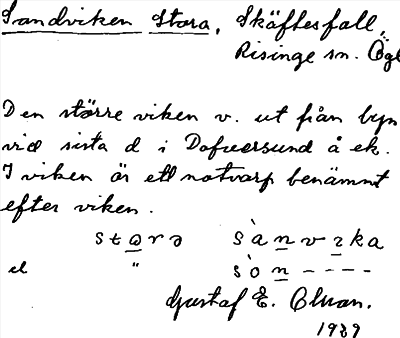 Sandviken Stora, Skäftesfall,
Risinge sn. Ögl
Den större viken v. ut från byn
vid sista d i Dofversund å ek.
I viken är ett notvarp benämnt
efter viken.
stɷrə sànvɪka
el " sòn - - - -
Gustaf E. Clman.
1929